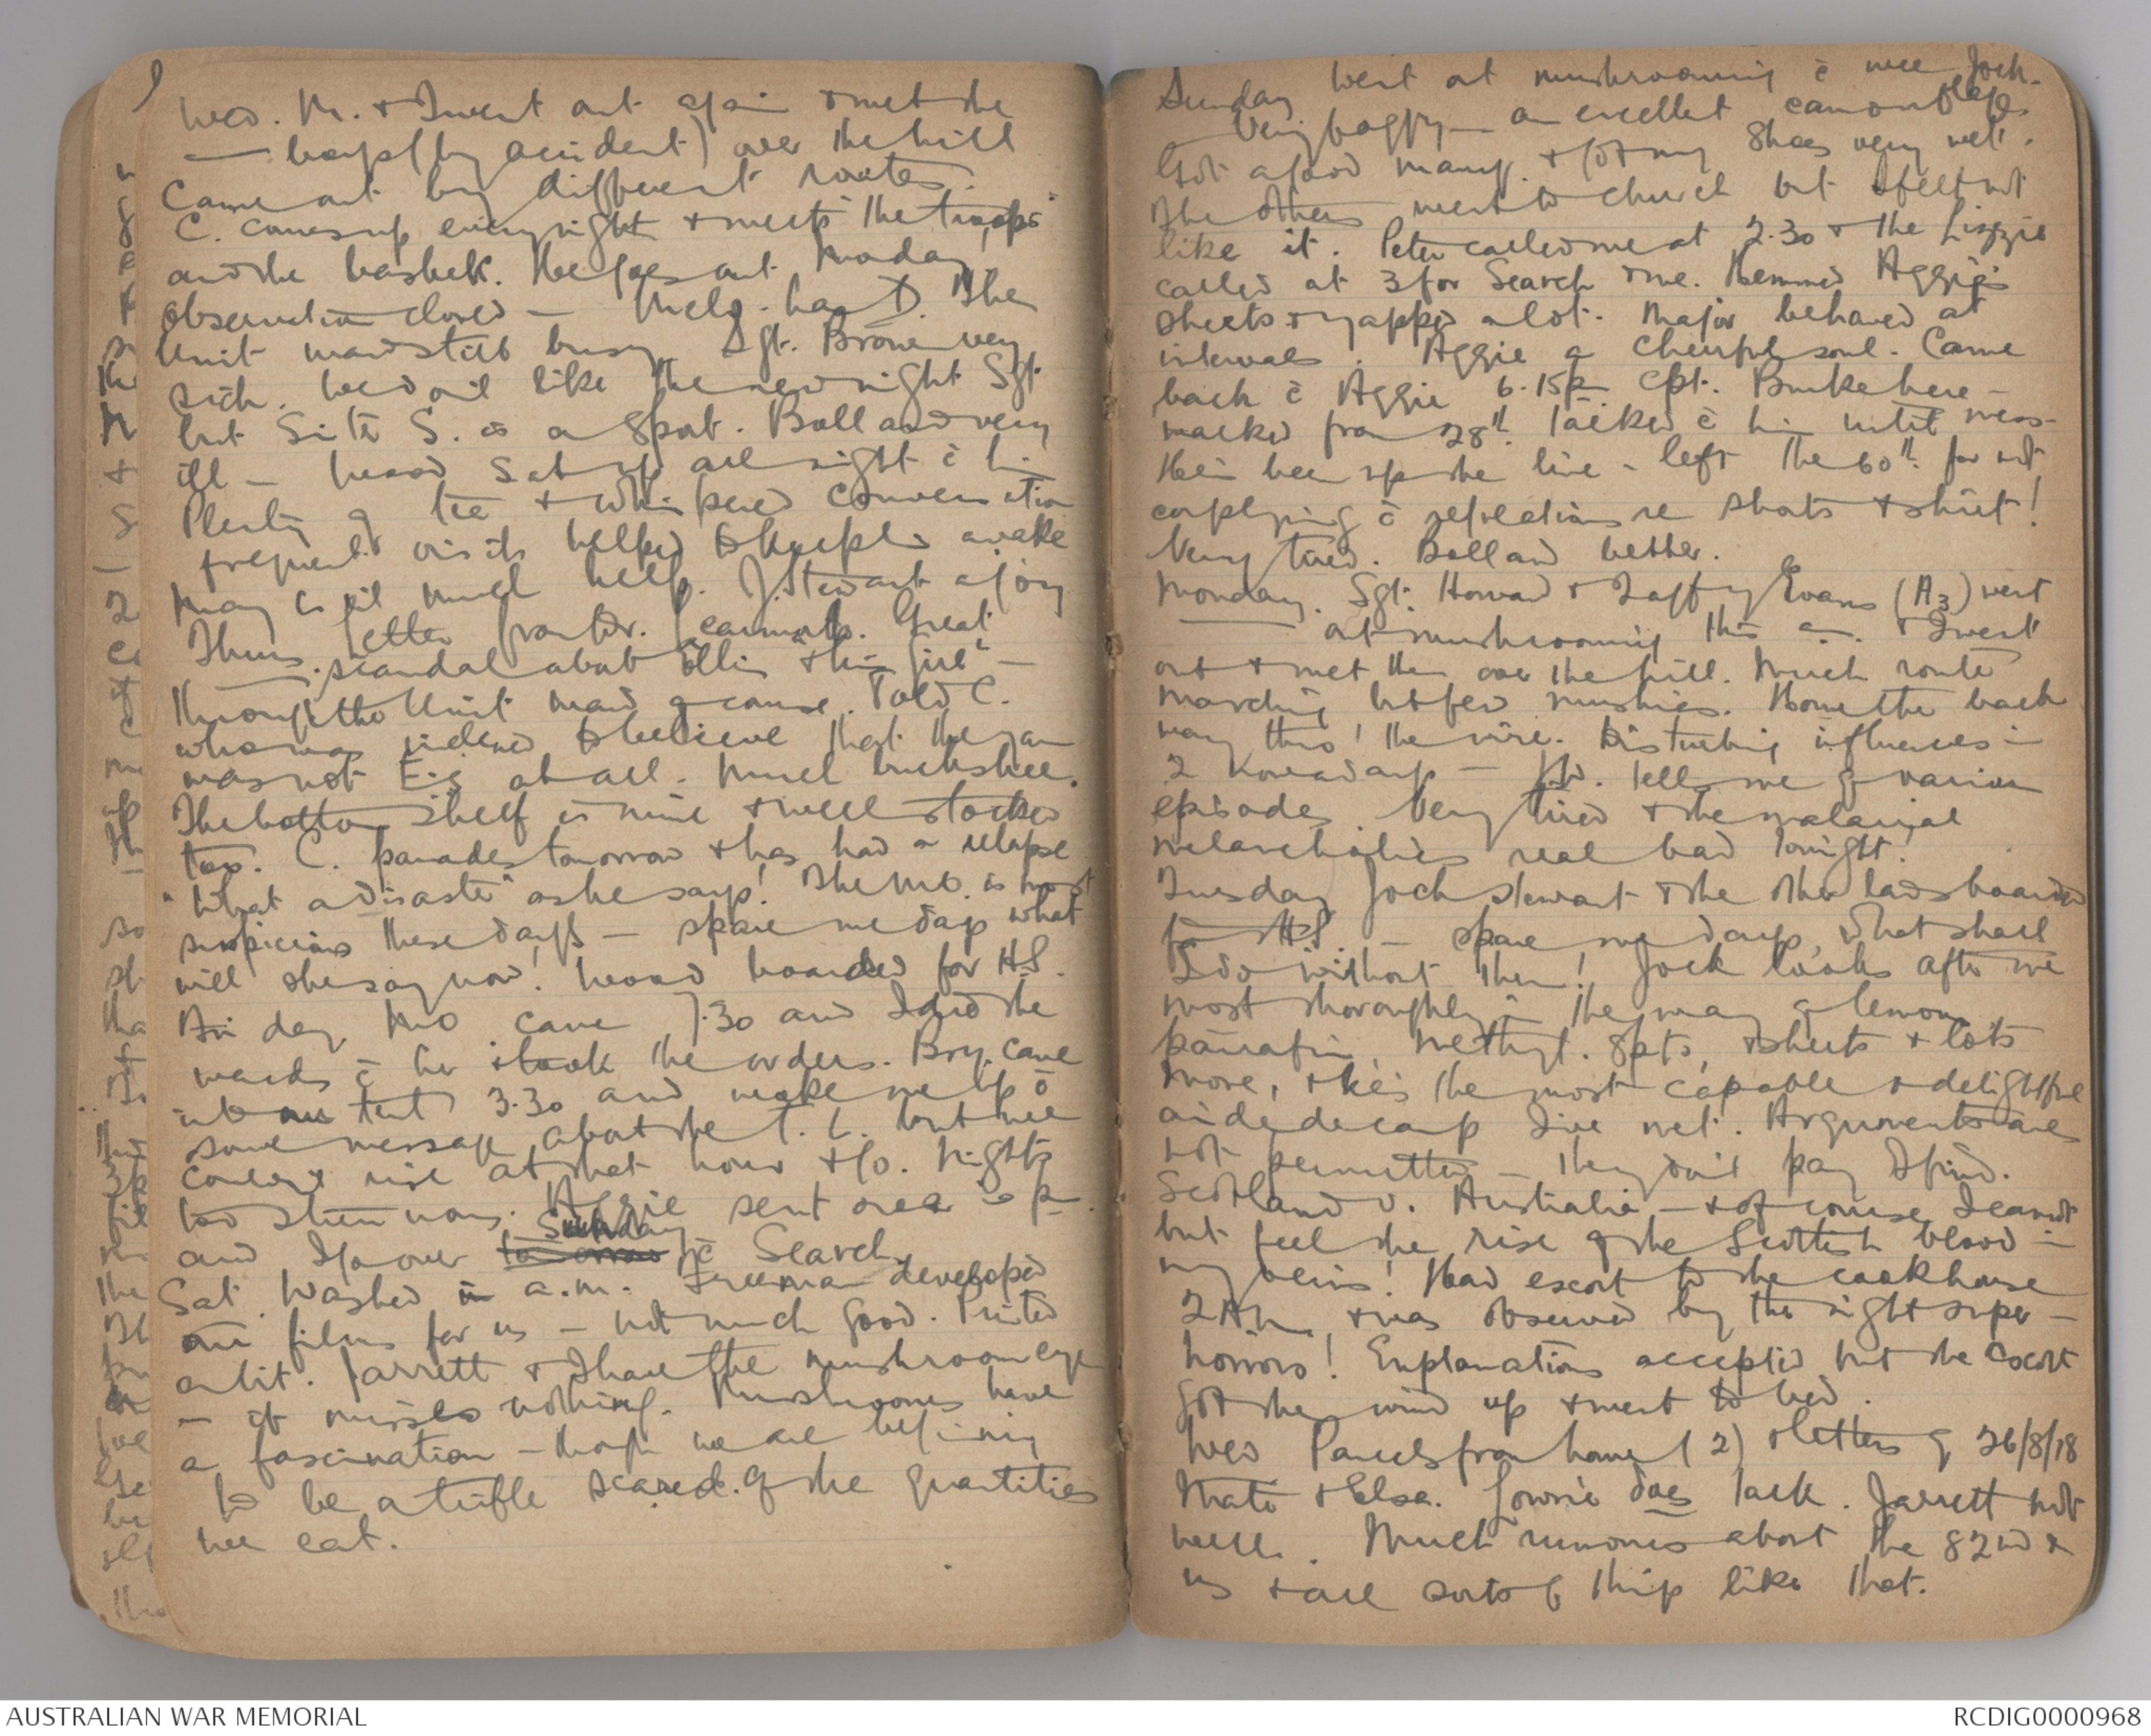 Wed. M. & I went out again & met the
boys (by accident) over the hill
Came out by different routes.
C. comes up every night & meets the "troops"
and the basket. He goes out Monday,
observation closed — Mclg. has D. The
Unit ward still busy. Sgt. Brown very
sick. We don't like the new night Sgt.
but Sister S. is a sport. Balland very
ill — Wood sat up all night c̄ him
Plenty of tea & whispered conversation
frequent visits helped to keep him awake
May is not much help. J. Stewart a joy
Thurs. Letter from Dr. Learmonth. Great
scandal about Ellis & "his girl" —
through the Unit ward of course. Told C.
who was inclined to believe that the yarn
was not E's at all. Much buckshee.
The bottom shelf is mine & well stocked
too. C. parades tomorrow & has had a relapse
"What a disaster" as he says! The M.O. is most
suspicious these days — spare me days what
will she say now! Wood boarded for H.S.
Friday M.O. came 7.30 and I did the
wards c̄ her & took the orders. Bry. came
into our tent 3.30 and woke me up c̄
some message about the T.L. but we
couldn't rise at that hour & go. Nights
too strenuous. Aggie sent over is pm.
and I go over Sunday c̄ Search.
Sat. Washed in a.m. Freeman developed
our films for us — not much good. Printed
a bit. Jarrett & I have the mushroom eye
— it misses nothing. Mushrooms have
a fascination — though we are beginning
to be a trifle scared of the quantities
we eat.
Sunday Went out mushrooming c̄ wee Jock.
Very foggy — an excellent camouflage
Got a good many. & got my shoes very wet.
The others went to church but I felt not
like it. Peter called me at 2.30 & the Lizzie
called at 3 for Search & me. Hemmed Aggie's
sheets & yapped a lot. Major behaved at
intervals. Aggie a cheerful soul. Came
back c̄ Aggie 6.15 pm. Cpt. Burke here —
marked from 28th. Talked c̄ him until mess.
He's been up the line — left the 60th for not
complying c̄ regulations re shorts & shirt!
Very tired. Balland better.
Monday. Sgt. Howard & Taffy Evans (A3) went
out mushrooming this a.m. & I went
out & met them over the hill. Much route
marching but few mushies. Home the back
way thro' the wire. Disturbing influences in
2 Kowadarp — Jd. tells me of various
episodes. Very tired & the malarial
melancholies real bad tonight!
Tuesday Jock Stewart & the other lads boarded
for H.S. — spare me days, what shall
I do without them! Jock looks after me
most thoroughly in the way of lemons,
parrafin, methyl. spts, & sheets & lots
more, & he's the most capable & delightful
aide de camp I've met. Arguments are
not permitted — they don't pay I find.
Scotland v. Australia — & of course I cannot
but feel the rise of the Scottish blood in
my veins! Had escort to the cookhouse
2 A.M. & was observed by the night super —
horrors! Explanations accepted but the escort
got the wind up & went to bed.
Wed Parcels from home (2) & letters of 26/8/18
Mate & Elsa. Lowrie does talk. Jarrett not
well. Much rumours about the 82nd &
us & all sorts of things like that.
AUSTRALIAN WAR MEMORIAL
RCDIG0000968